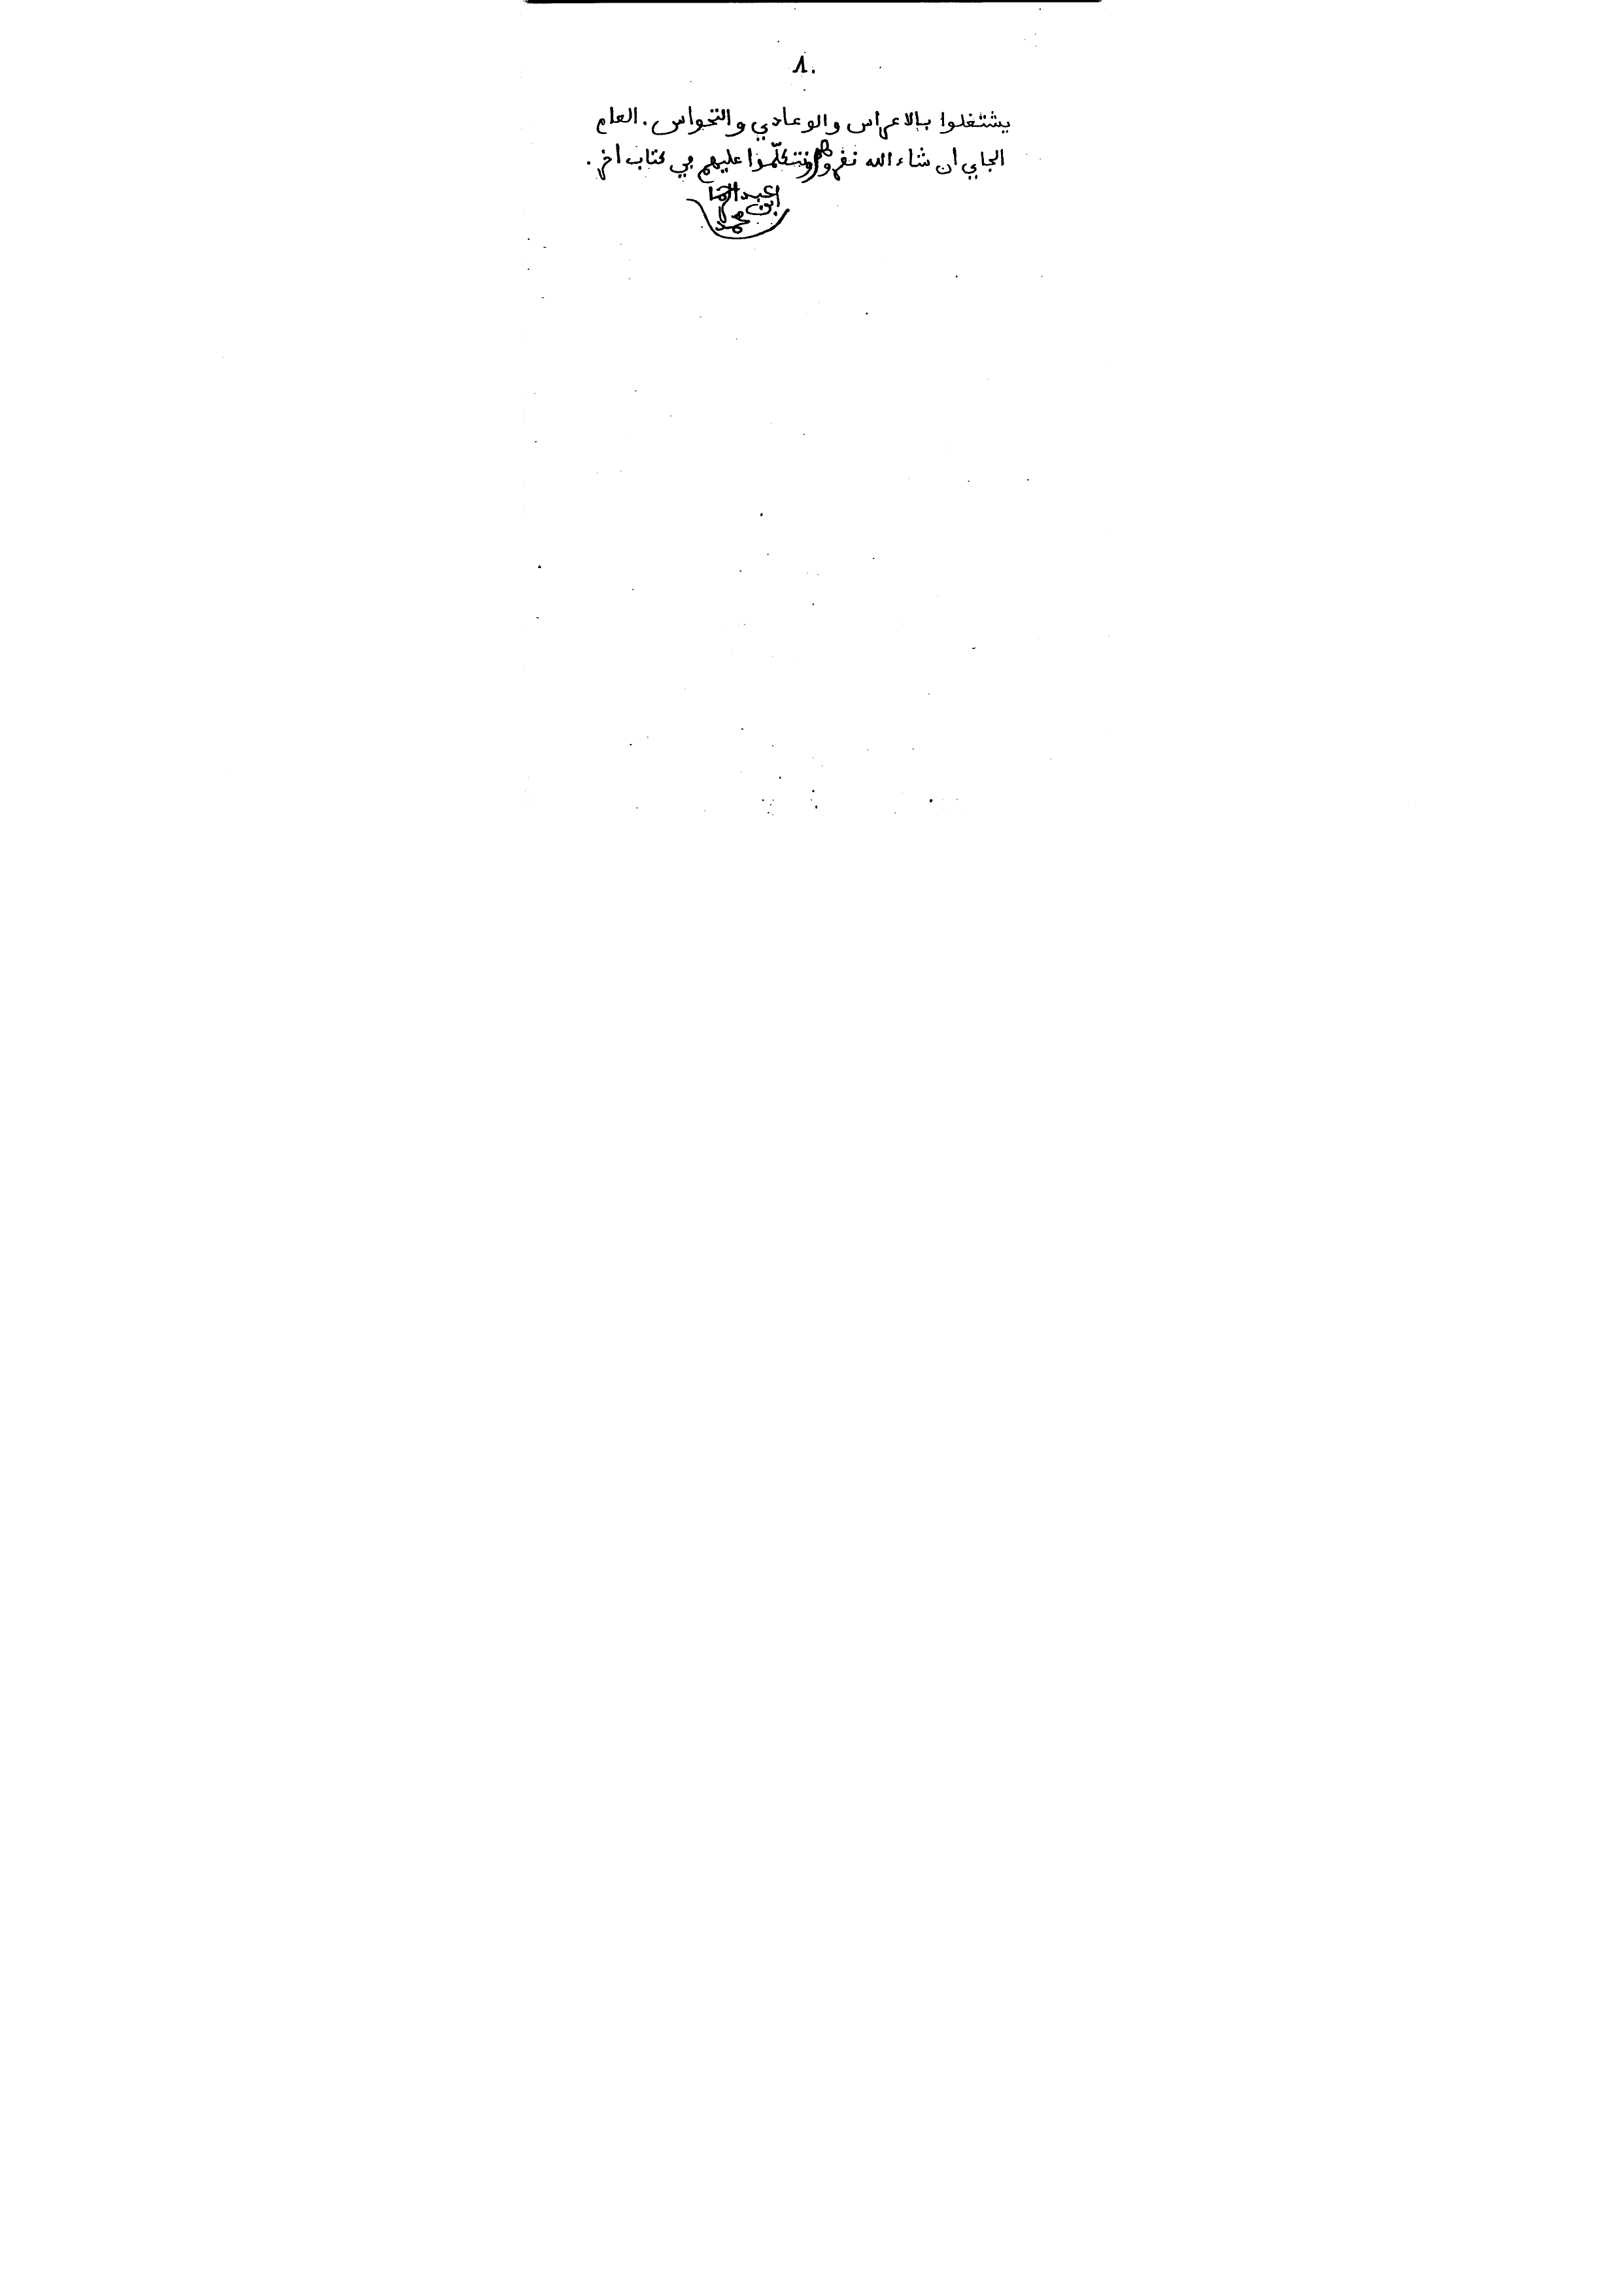 ٨٠
يشتغلوا بالاعراس والوعادي والتحواس. العام
الجاي ان شاء الله نفروهم ونتكلّموا عليهم في كتاب اخر.
عبد الله
ابن
محمد